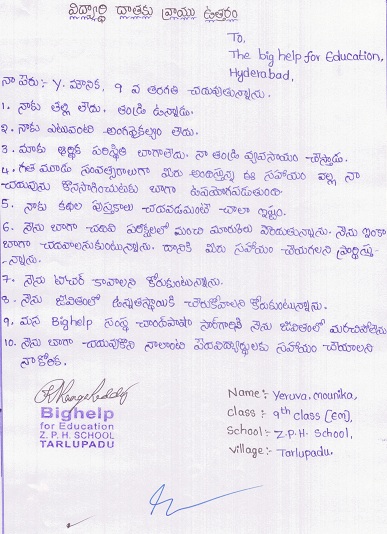 విద్యార్థి దాతకు వ్రాయు ఉత్తరం
To,
The big help for Education,
Hyderabad,
నా పేరు:- Y. మౌనిక, 9 వ తరగతి చదువుతున్నాను.
1. నాకు తల్లి లేదు. తండ్రి ఉన్నాడు.
2. నాకు ఎటువంటి అంగవైకల్యం లేదు.
3. మాకు ఆర్థిక పరిస్థితి బాగాలేదు. నా తండ్రి వ్యవసాయం చేస్తాడు.
4. గత మూడు సంవత్సరాలుగా మీరు అందిస్తున్న ఈ సహాయం వల్ల నా
చదువును కొనసాగించుటకు బాగా ఉపయోగపడుతుంది.
5. నాకు కథల పుస్తకాలు చదవడమంటే చాలా ఇష్టం.
6. నేను బాగా చదివి పరీక్షలలో మంచి మార్కులు పొందుతున్నాను. నేను ఇంకా
బాగా చదవాలనుకుంటున్నాను. దానికి మీరు సహాయం చేయగలని ప్రార్థిస్తు-
-న్నాను.
7. నేను టీచర్ కావాలని కోరుకుంటున్నాను.
8. నేను జీవితంలో ఉన్నతస్థాయికి చేరుకోవాలని కోరుకుంటున్నాను.
9. మన Bighelp సంస్థ చాంద్ పాషా సార్ గారిని నేను జీవితంలో మరచిపోలేను
10. నేను బాగా చదువుకొని నాలాంటి పేదవిద్యార్థులకు సహాయం చేయాలని
నా కోరిక.
Bighelp
for Education
Z. P. H. SCHOOL
TARLUPADU
Name:- Yeruva. Mounika,
Class:- 9th class (EM),
School:- Z.P.H. School,
Village:- Tarlupadu.